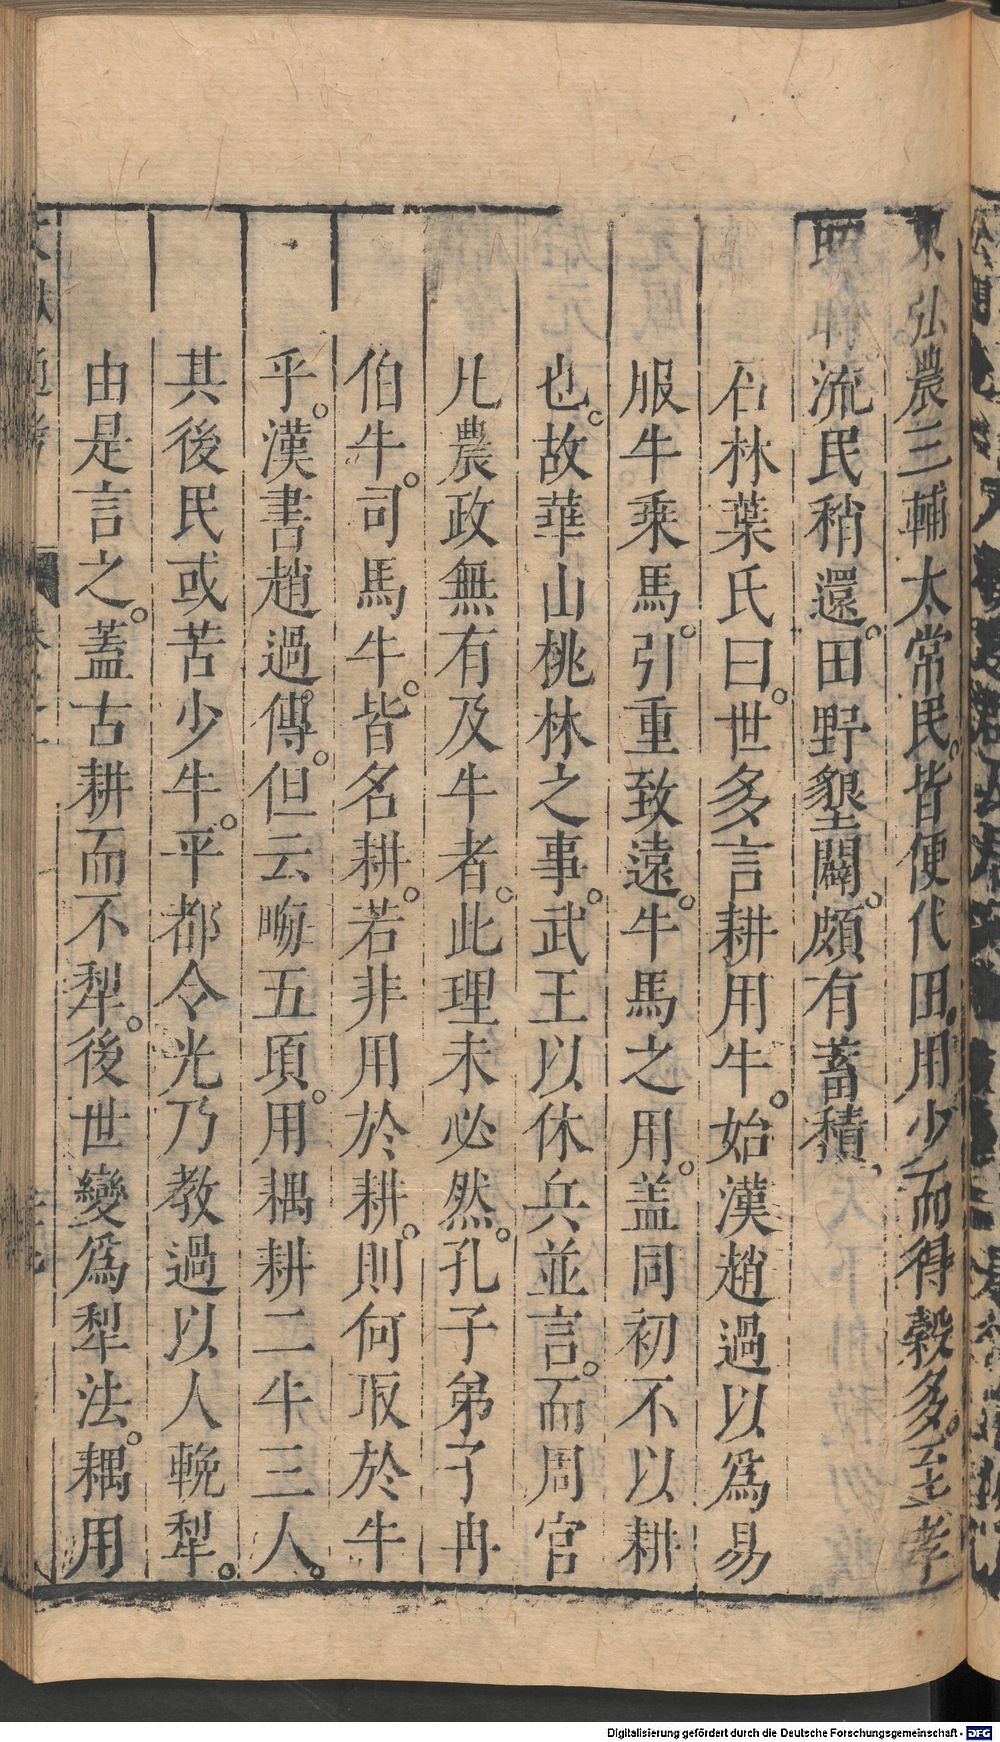 東弘農三輔太常民。皆便代田。用少而得穀多。至孝
昭。流民稍還。田野墾闢。頗有蓄積、
石林葉氏曰。世多言耕用牛。始漢趙過以爲易
服牛乘馬。引重致遠。牛馬之用。盖同初不以耕
也。故華山桃林之事。武王以休兵並言。而周官
凡農政無有及牛者。此理未必然。孔子弟子冉
伯牛。司馬牛。皆名耕。若非用於耕。則何取於牛
乎。漢書趙過傳。但云畮五頃。用耦耕二牛三人。
其後民或苦少牛。平都令光乃教過以人輓犁。
由是言之。蓋古耕而不犁。後世變爲犁法。耦用
Digitalisierung gefördert durch die Deutsche Forschungsgemeinschaft - DFG